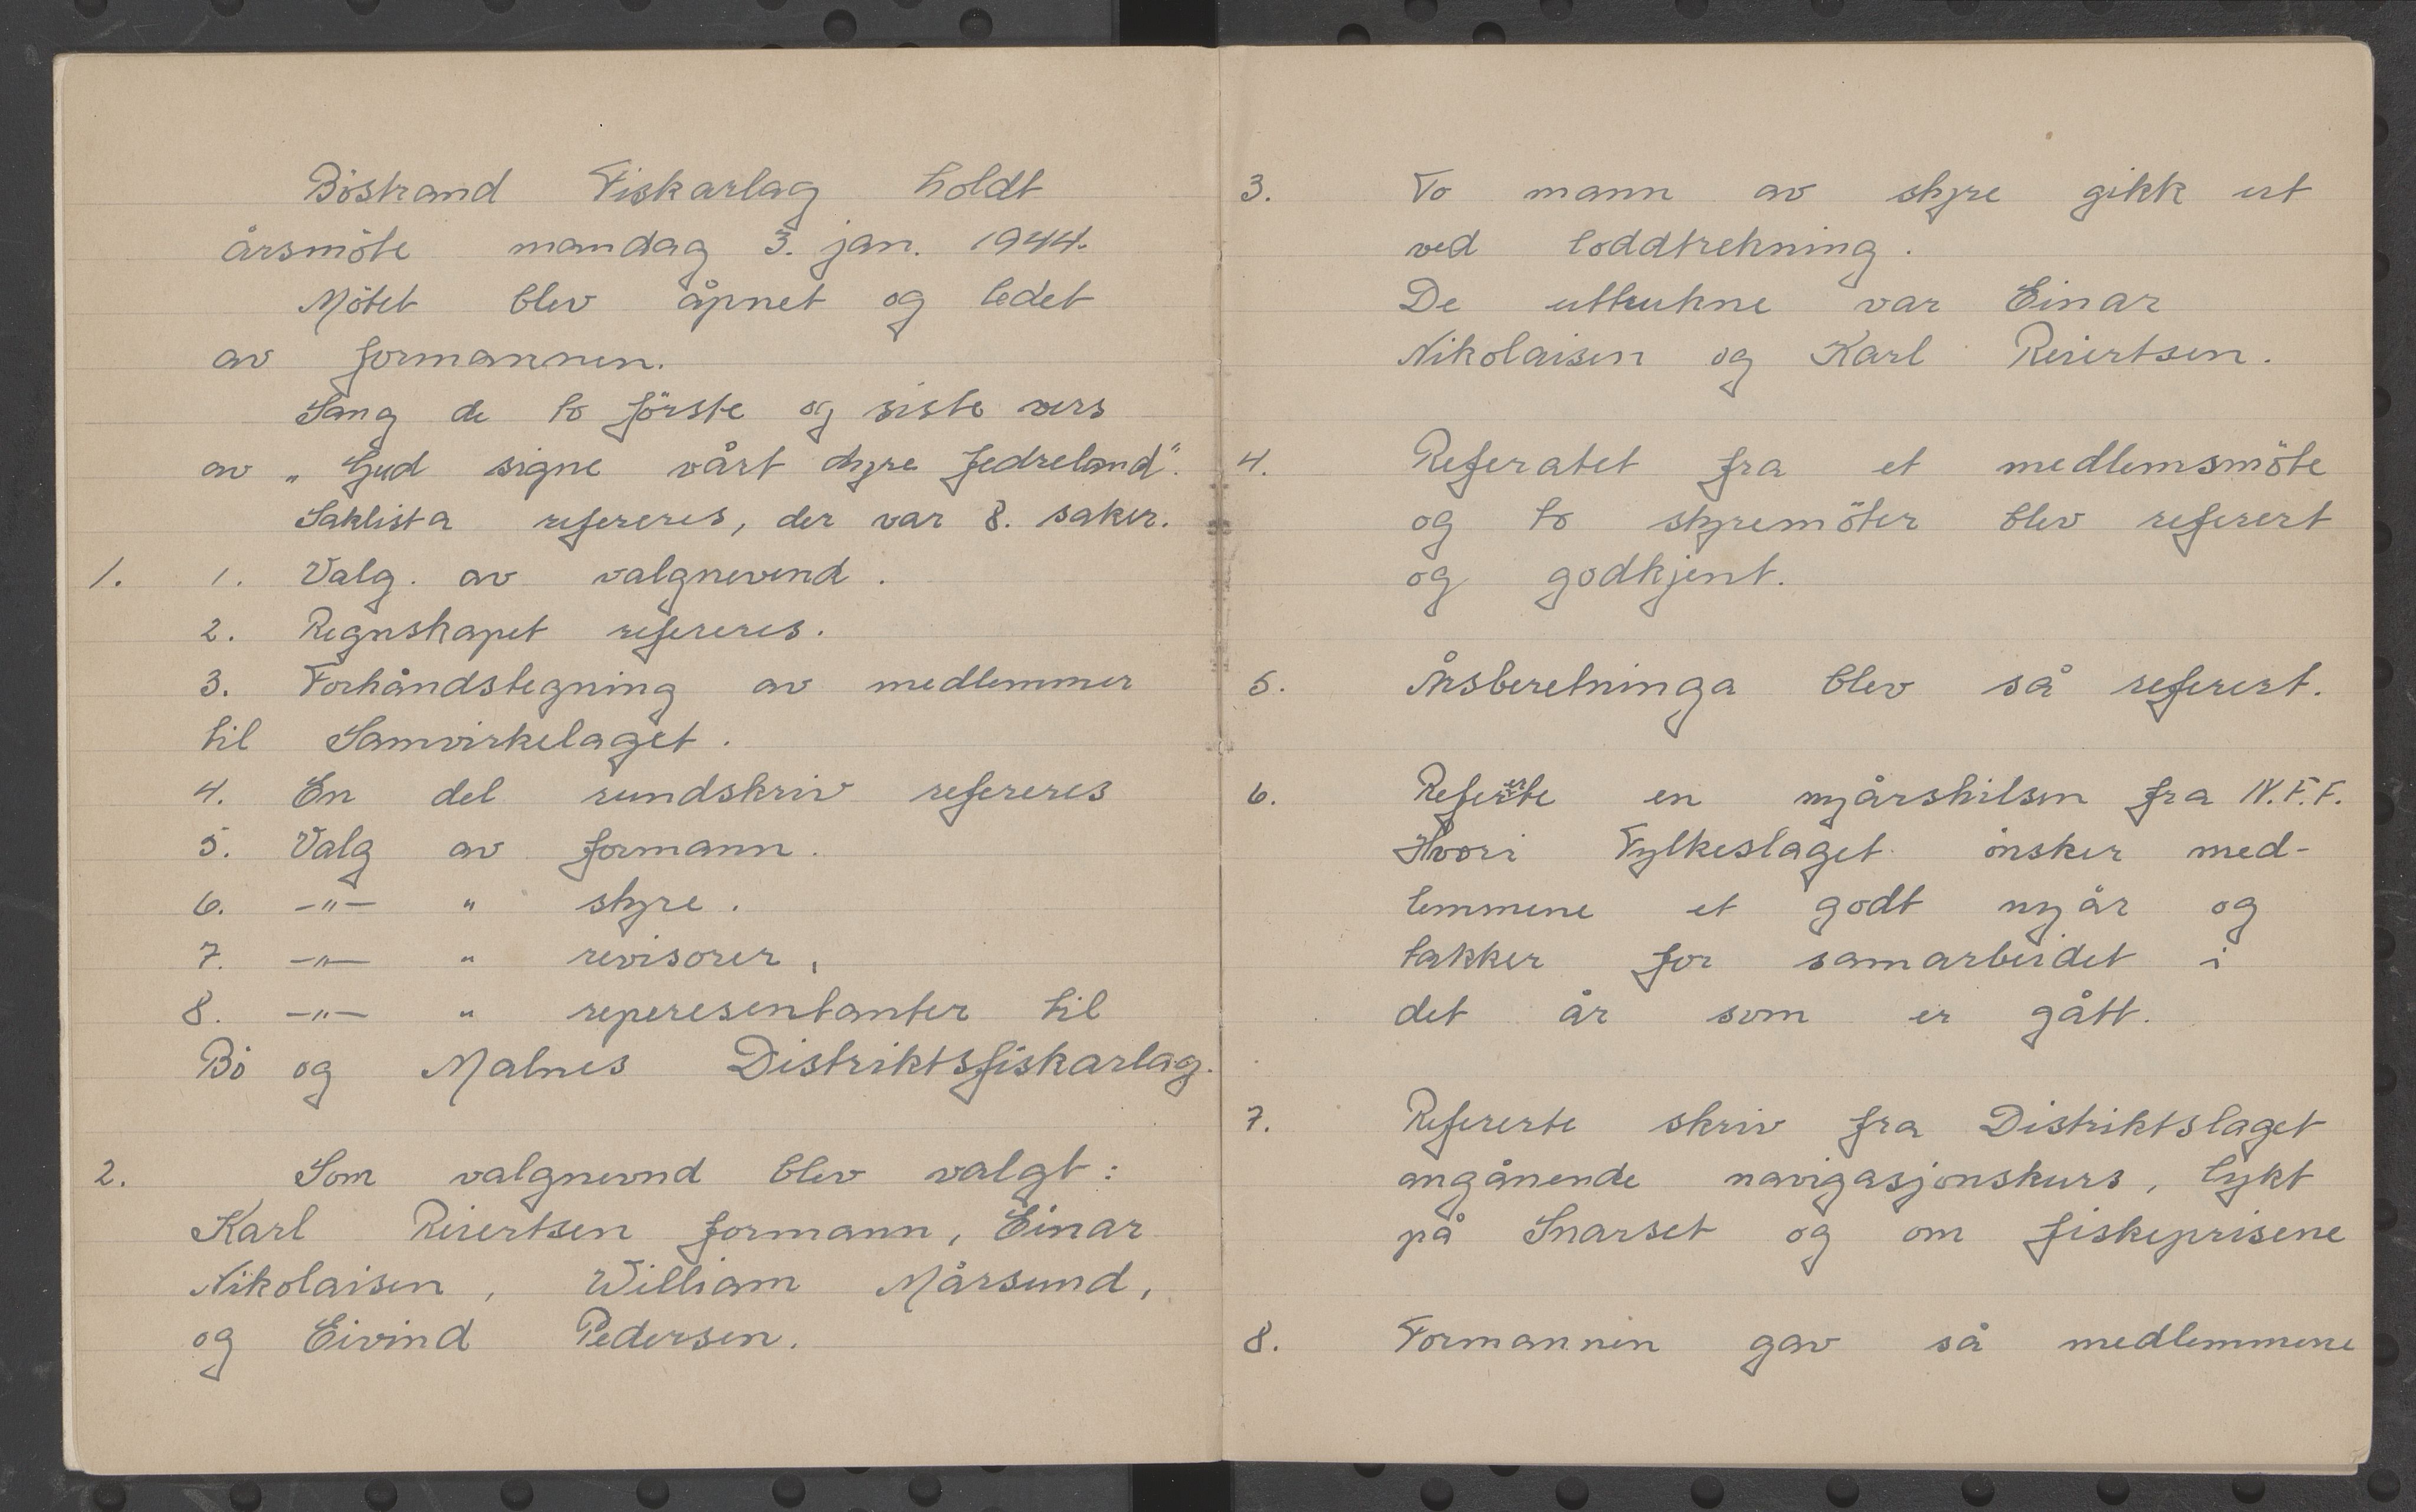 Böstrand Fiskarlag holdt
årsmöte mandag 3. jan. 1944.
Mötet blev åpnet og ledet
av formannen.
Sang de to förste og siste vers
av „Gud signe vårt dyre fedreland".
Saklista refereres, der var 8. saker.
1. 1. Valg. av valgnevend.
2. Regnskapet refereres.
3. Forhåndstegning av medlemmer
til Samvirkelaget.
4. En del rundskriv refereres
5. Valg av formann.
6. -"- " styre.
7. -"- " revisorer.
8. -"- " reperesentanter til
Bö og Malnes Distriktsfiskarlag.
2. Som valgnevnd blev valgt:
Karl Reiertsen formann, Einar
Nikolaisen, William Mårsund,
og Eivind Pedersen.
3. To mann av styre gikk ut
ved loddtrekning.
De uttrukne var Einar
Nikolaisen og Karl Reiertsen.
4. Referatet fra et medlemsmöte
og to styremöter blev referert
og godkjent.
5. Årsberetninga blev så referert.
6. Refererte en nyårshilsen fra N.F.F.
Hvori Fylkeslaget önsker med-
lemmene et godt nyår og
takker for samarbeidet i
det år som er gått.
7. Refererte skriv fra Distriktslaget
angånende navigasjonskurs, lykt
på Snarset og om fiskeprisene
8. Formannen gav så medlemmene